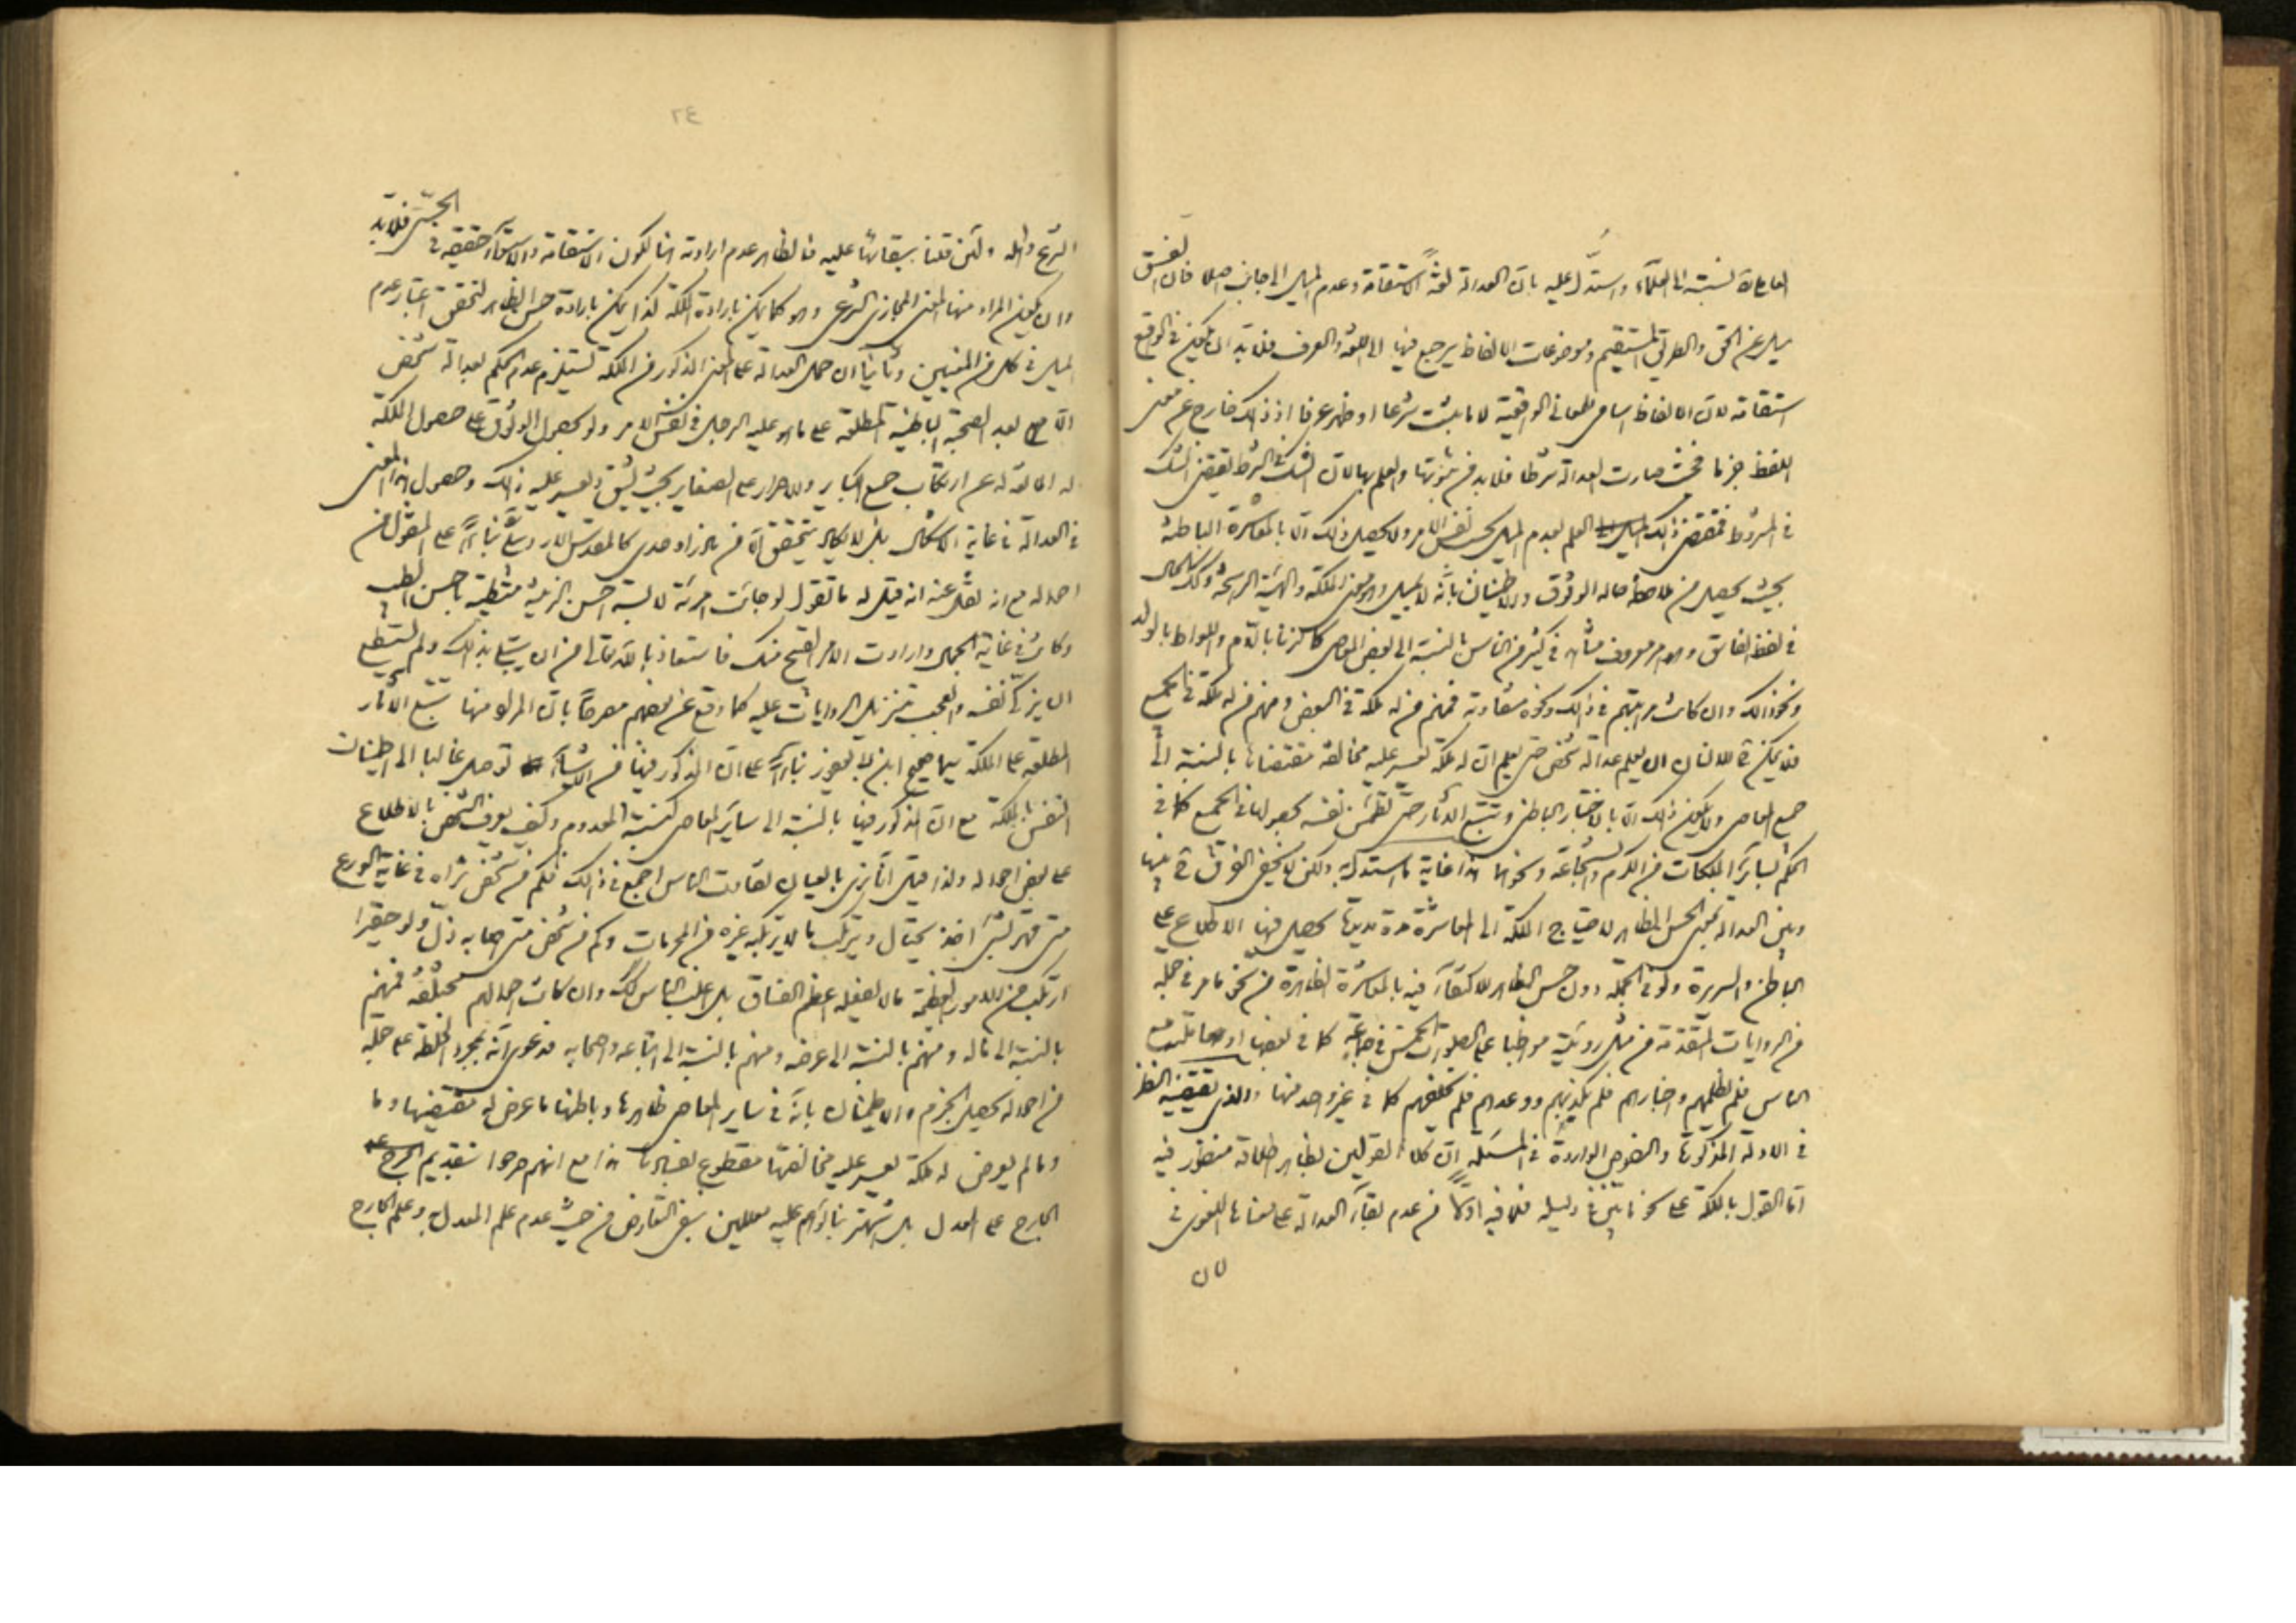 العامة نسبته الى العلماء واستدل عليه بان العدالة لغة الاستقامة وعدم الميل الى جانب اصلا فان الفسق
ميل عن الحق والطريق المستقيم وموضوعات الالفاظ يرجع فيها الى اللغة والعرف فلا بد ان يكون في الواقع
استقامة لان الالفاظ اسامي للمعاني الواقعية لا ما يثبت شرعا او ظهر عرفا اذ ذلك خارج عن معنى
اللفظ جزما فحيث صارت العدالة شرطا فلا بد من ثبوتها والعلم بها لان الشك في الشرط يقتضي الشك
في المشروط فمقتضى ذلك العلم بعدم الميل بحسب نفس الامر ولا يحصل ذلك الا بالمعاشرة الباطنة
بحيث يحصل من ملاحظة حاله الوثوق والاطمينان بانه لا يميل وهو معنى الملكة والهيئة الراسخة وكذلك الحال
في لفظ الفاسق وهو امر معروف في كثير من الناس بالنسبة الى بعض المعاصي كالزنا بالام واللواط بالولد
ونحو ذلك وان كانت مراتبهم في ذلك ونحوه متفاوتة فمنهم من له ملكة في البعض ومنهم من له ملكة في الجميع
فلا يمكن للانسان ان يعلم عدالة شخص حتى يعلم ان له ملكة تعسر عليه مخالفة مقتضاها بالنسبة الى
جميع المعاصي ولا يكون ذلك الا بالاختبار الباطني وتتبع الاثار حتى تطمئن نفسه بحصولها في الجميع كما في
الحكم بسائر الملكات من الكرم والشجاعة ونحوها هذا غاية ما استدل به ولكن لا يخفى الفرق بينها
وبين العدالة بمعنى الحسن الظاهر لاحتياج الملكة الى المعاشرة مدة مديدة يحصل فيها الاطلاع على
الباطن والسريرة ولو في الجملة دون حسن الظاهر للاكتفاء فيه بالمعاشرة الظاهرة من نحو ما مر في جملة
من الروايات المتقدمة من مثل رؤيته مواظبا على الصلوات الخمس في جماعة كما في بعضها او معاملته مع
الناس فلم يظلمهم واخبارهم فلم يكذبهم ووعدهم فلم يخلفهم كما في غير واحد منها والذي يقتضيه النظر
في الادلة المذكورة والنصوص الواردة في المسئلة ان كلا القولين بظاهر اطلاقه منظور فيه
اما القول بالملكة على نحو ما بين في دليله فلما فيه اولا من عدم بقاء العدالة على معناها اللغوي في
لان
الشرع واهله ولئن قلنا ببقائها عليه فالظاهر عدم ارادته هنا لكون الاستقامة والاستواء حقيقة في الحسي فلا بد
وان يكون المراد منها المعنى المجازي الشرعي وهو كما يمكن بارادة الملكة كذا يمكن بارادة حسن الظاهر لتحقق اعتبار عدم
الميل في كل من المعنيين وثانيا ان حمل العدالة على المعنى المذكور من الملكة تستلزم عدم الحكم بعدالة شخص
الا بعد الصحبة الباطنية المطلعة على ما هو عليه الرجل في نفس الامر ولو بحصول الوثوق على حصول الملكة
له المانعة له عن ارتكاب جميع الكباير والاصرار على الصغاير بحيث يشق ويعسر عليه ذلك وحصول هذا المعنى
في العدالة في غاية الاشكال بل لا يكاد يتحقق الا في افراد وحدي كالمقدس الاردبيلي بناء على المنقول من
احواله مع انه نقل عنه انه قيل له ما تقول لو جائت امرئة لابسة احسن الزينة متطيبة باحسن الطيب
وكانت في غاية الجمال وارادت الامر القبيح منك فاستعاذ بالله تعالى من ان يبتلى بذلك ولم يستطع
ان يزكي نفسه والعجب تنزيل الروايات عليه كما وقع عن بعضهم معرضا بان المراد منها تتبع الاثار
المطلعة على الملكة سيما صحيح ابن ابي يعفور بناء على ان المذكور فيها من الاشياء توصل غالبا الى اطمينان
النفس بالملكة مع ان المذكور فيها بالنسبة الى ساير المعاصي كنسبة المعدوم وكيف يعرف الشخص بالاطلاع
على بعض احواله ولذا قيل انا نرى بالعيان تفاوت الناس اجمع في ذلك فكم من شخص تراه في غاية الورع
متى قهر لشئ اخذ يحتال ويرتكب ما لا يرتكبه غيره من المحرمات وكم من شخص متى اصابه ذل ولو حقيرا
ارتكب من الامور العظيمة ما لا يفعله اعظم الفساق بل اغلب الناس كذلك وان كانت احوالهم مختلفة فمنهم
بالنسبة الى ماله ومنهم بالنسبة الى عرضه ومنهم بالنسبة الى اتباعه واصحابه فدعوى انه بمجرد الخلطة على جملة
من احواله يحصل الجزم والاطمينان بانه في ساير المعاصي ظاهرها وباطنها ما عرض له مقتضيها وما
وما لم يعرض له ملكة يعسر عليه مخالفتها مقطوع بفسادها هذا مع انهم صرحوا بتقديم الجرح
الجارح على المعدل بل اشتهر بناؤهم عليه معللين بنفي التعارض من حيث عدم علم المعدل به وعلم الجارح